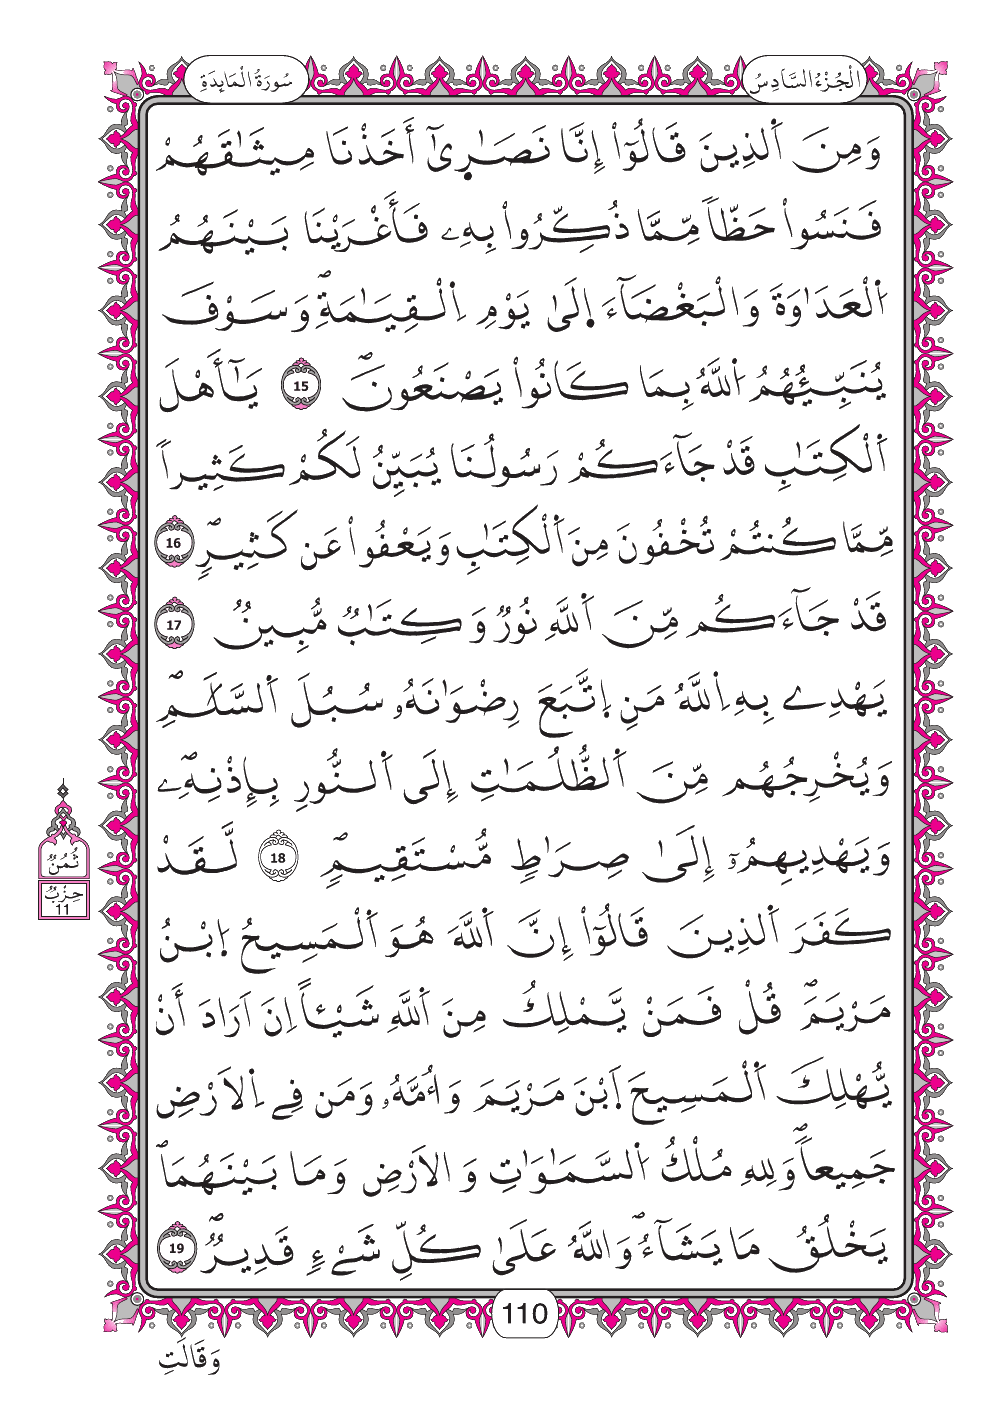 الْجُزْءُ السَّادِسُ
سُورَةُ الْمَائِدَةِ
وَمِنَ اَ۬لذِينَ قَالُوٓاْ إِنَّا نَصَٰر۪ىٰٓ أَخَذْنَا مِيثَٰقَهُمْ
فَنَسُواْ حَظّاٗ مِّمَّا ذُكِّرُواْ بِهِۦ فَأَغْرَيْنَا بَيْنَهُمُ
اُ۬لْعَدَٰوَةَ وَالْبَغْضَآءَ اِ۪لَىٰ يَوْمِ اِ۬لْقِيَٰمَةِۖ وَسَوْفَ
يُنَبِّئُهُمُ اُ۬للَّهُ بِمَا كَانُواْ يَصْنَعُونَۖ 15 يَٰٓأَهْلَ
اَ۬لْكِتَٰبِ قَدْ جَآءَكُمْ رَسُولُنَا يُبَيِّنُ لَكُمْ كَثِيراٗ
مِّمَّا كُنتُمْ تُخْفُونَ مِنَ اَ۬لْكِتَٰبِ وَيَعْفُواْ عَن كَثِيرٖۖ 16
قَدْ جَآءَكُم مِّنَ اَ۬للَّهِ نُورٞ وَكِتَٰبٞ مُّبِينٞ 17
يَهْدِے بِهِ اِ۬للَّهُ مَنِ اِ۪تَّبَعَ رِضْوَٰنَهُۥ سُبُلَ اَ۬لسَّلَٰمِۖ
وَيُخْرِجُهُم مِّنَ اَ۬لظُّلُمَٰتِ إِلَى اَ۬لنُّورِ بِإِذْنِهِۦۖ
وَيَهْدِيهِمُۥٓ إِلَىٰ صِرَٰطٖ مُّسْتَقِيمٖۖ 18 لَّقَدْ
كَفَرَ اَ۬لذِينَ قَالُوٓاْ إِنَّ اَ۬للَّهَ هُوَ اَ۬لْمَسِيحُ اُ۪بْنُ
مَرْيَمَۖ قُلْ فَمَنْ يَّمْلِكُ مِنَ اَ۬للَّهِ شَيْـٔاً اِنَ اَرَادَ أَنْ
يُّهْلِكَ اَ۬لْمَسِيحَ اَ۪بْنَ مَرْيَمَ وَأُمَّهُۥ وَمَن فِے اِ۬لَارْضِ
جَمِيعاٗۖ وَلِلهِ مُلْكُ اُ۬لسَّمَٰوَٰتِ وَالَارْضِ وَمَا بَيْنَهُمَاۖ
يَخْلُقُ مَا يَشَآءُۖ وَاللَّهُ عَلَىٰ كُلِّ شَےْءٖ قَدِيرٞۖ 19
ثُمُنٌ
حِزْبٌ
11
110
وَقَالَتِ